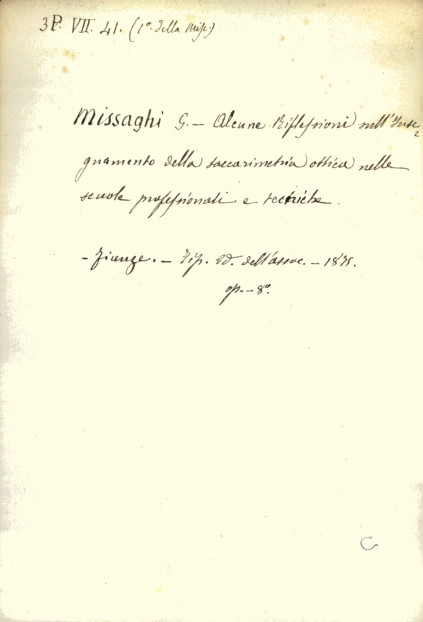 3P. VII. 41. (1º della Misc)
Missaghi G. — Alcune Riflessioni sull'Inse=
gnamento della saccarimetria ottica nelle
scuole professionali e tecniche.
– Firenze. – Tip. Ed. dell'assoc. – 1875.
op. – 8º.
C